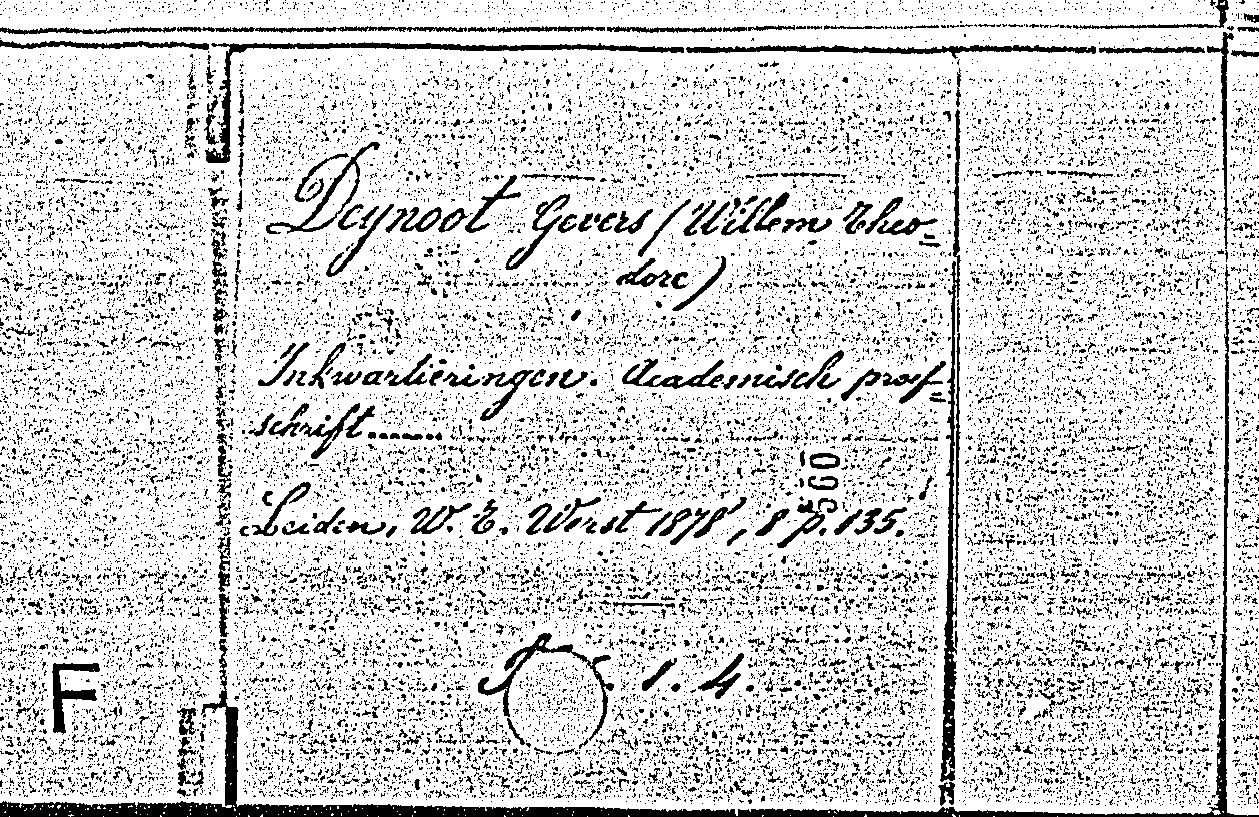 Deynoot Gevers (Willem Theo=
dore)
Inkwartieringen. Academisch proef=
schrift.......
560
Leiden, W. E. Werst 1878, 8 p. 135.
1. 4.
F